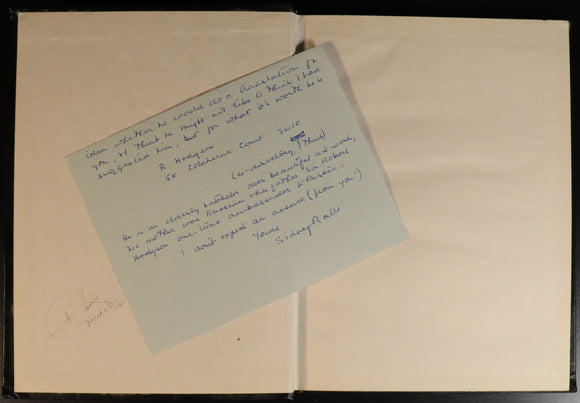 idea whether he would do a translation for
you, & think he might not like to think I had
suggested him, but for what it's worth he is
R. Hodgson
54 Coleherne Court SW10
(ex-directory, thus)
He is an elderly bachelor, does beautiful art work,
his mother was Russian & his father Sir Robert
Hodgson one-time ambassador to Russia.
I don't expect an answer (from you!)
Yours
Sidney